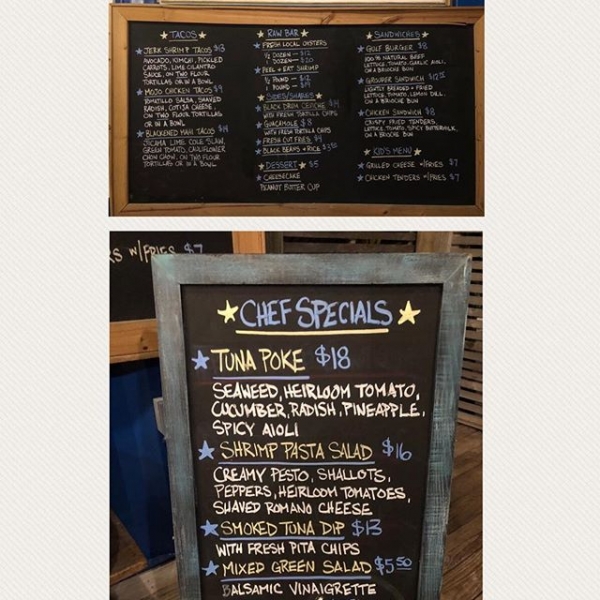 ★ TACOS ★
★ JERK SHRIMP TACOS $13
AVOCADO, KIMCHI, PICKLED
CARROTS, LIME CILANTRO
SAUCE, ON TWO FLOUR
TORTILLAS OR IN A BOWL
★ MOJO CHICKEN TACOS $9
TOMATILLO SALSA, SHAVED
RADISH, COTIJA CHEESE,
ON TWO FLOUR TORTILLAS
OR IN A BOWL
★ BLACKENED MAHI TACOS $14
JICAMA LIME COLE SLAW,
GREEN TOMATO, CAULIFLOWER
CHOW CHOW, ON TWO FLOUR
TORTILLAS OR IN A BOWL
★ RAW BAR ★
★ FRESH LOCAL OYSTERS
½ DOZEN — $12
DOZEN — $20
★ PEEL + EAT SHRIMP
½ POUND — $12
POUND — $19
★ SIDES/SHARES ★
★ BLACK DRUM CEVICHE $14
WITH FRESH TORTILLA CHIPS
★ GUACAMOLE $8
WITH FRESH TORTILLA CHIPS
★ FRESH CUT FRIES $4
★ BLACK BEANS + RICE $3.50
★ DESSERT ★ $5
★ CHEESECAKE
PEANUT BUTTER CUP
★ SANDWICHES ★
★ GULF BURGER $8
100% NATURAL BEEF
LETTUCE, TOMATO, GARLIC AIOLI,
ON A BRIOCHE BUN
★ GROUPER SANDWICH
LIGHTLY BREADED + FRIED
LETTUCE, TOMATO, LEMON DILL,
ON A BRIOCHE BUN
★ CHICKEN SANDWICH $8
CRISPY FRIED TENDERS,
LETTUCE, TOMATO, SPICY BUTTERMILK,
ON A BRIOCHE BUN
★ KID'S MENU ★
★ GRILLED CHEESE w/FRIES $7
★ CHICKEN TENDERS w/FRIES $7
RS w/FRIES $7
★ CHEF SPECIALS ★
★ TUNA POKE $18
SEAWEED, HEIRLOOM TOMATO,
CUCUMBER, RADISH, PINEAPPLE,
SPICY AIOLI
★ SHRIMP PASTA SALAD $16
CREAMY PESTO, SHALLOTS,
PEPPERS, HEIRLOOM TOMATOES,
SHAVED ROMANO CHEESE
★ SMOKED TUNA DIP $13
WITH FRESH PITA CHIPS
★ MIXED GREEN SALAD $5.50
BALSAMIC VINAIGRETTE